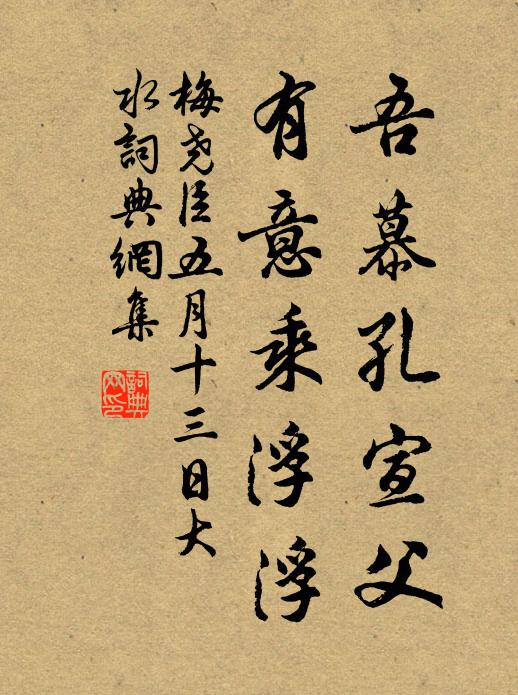 吾慕孔宣父
有意乘浮浮
梅堯臣五月十三日大
水詞典網集
詞典網印